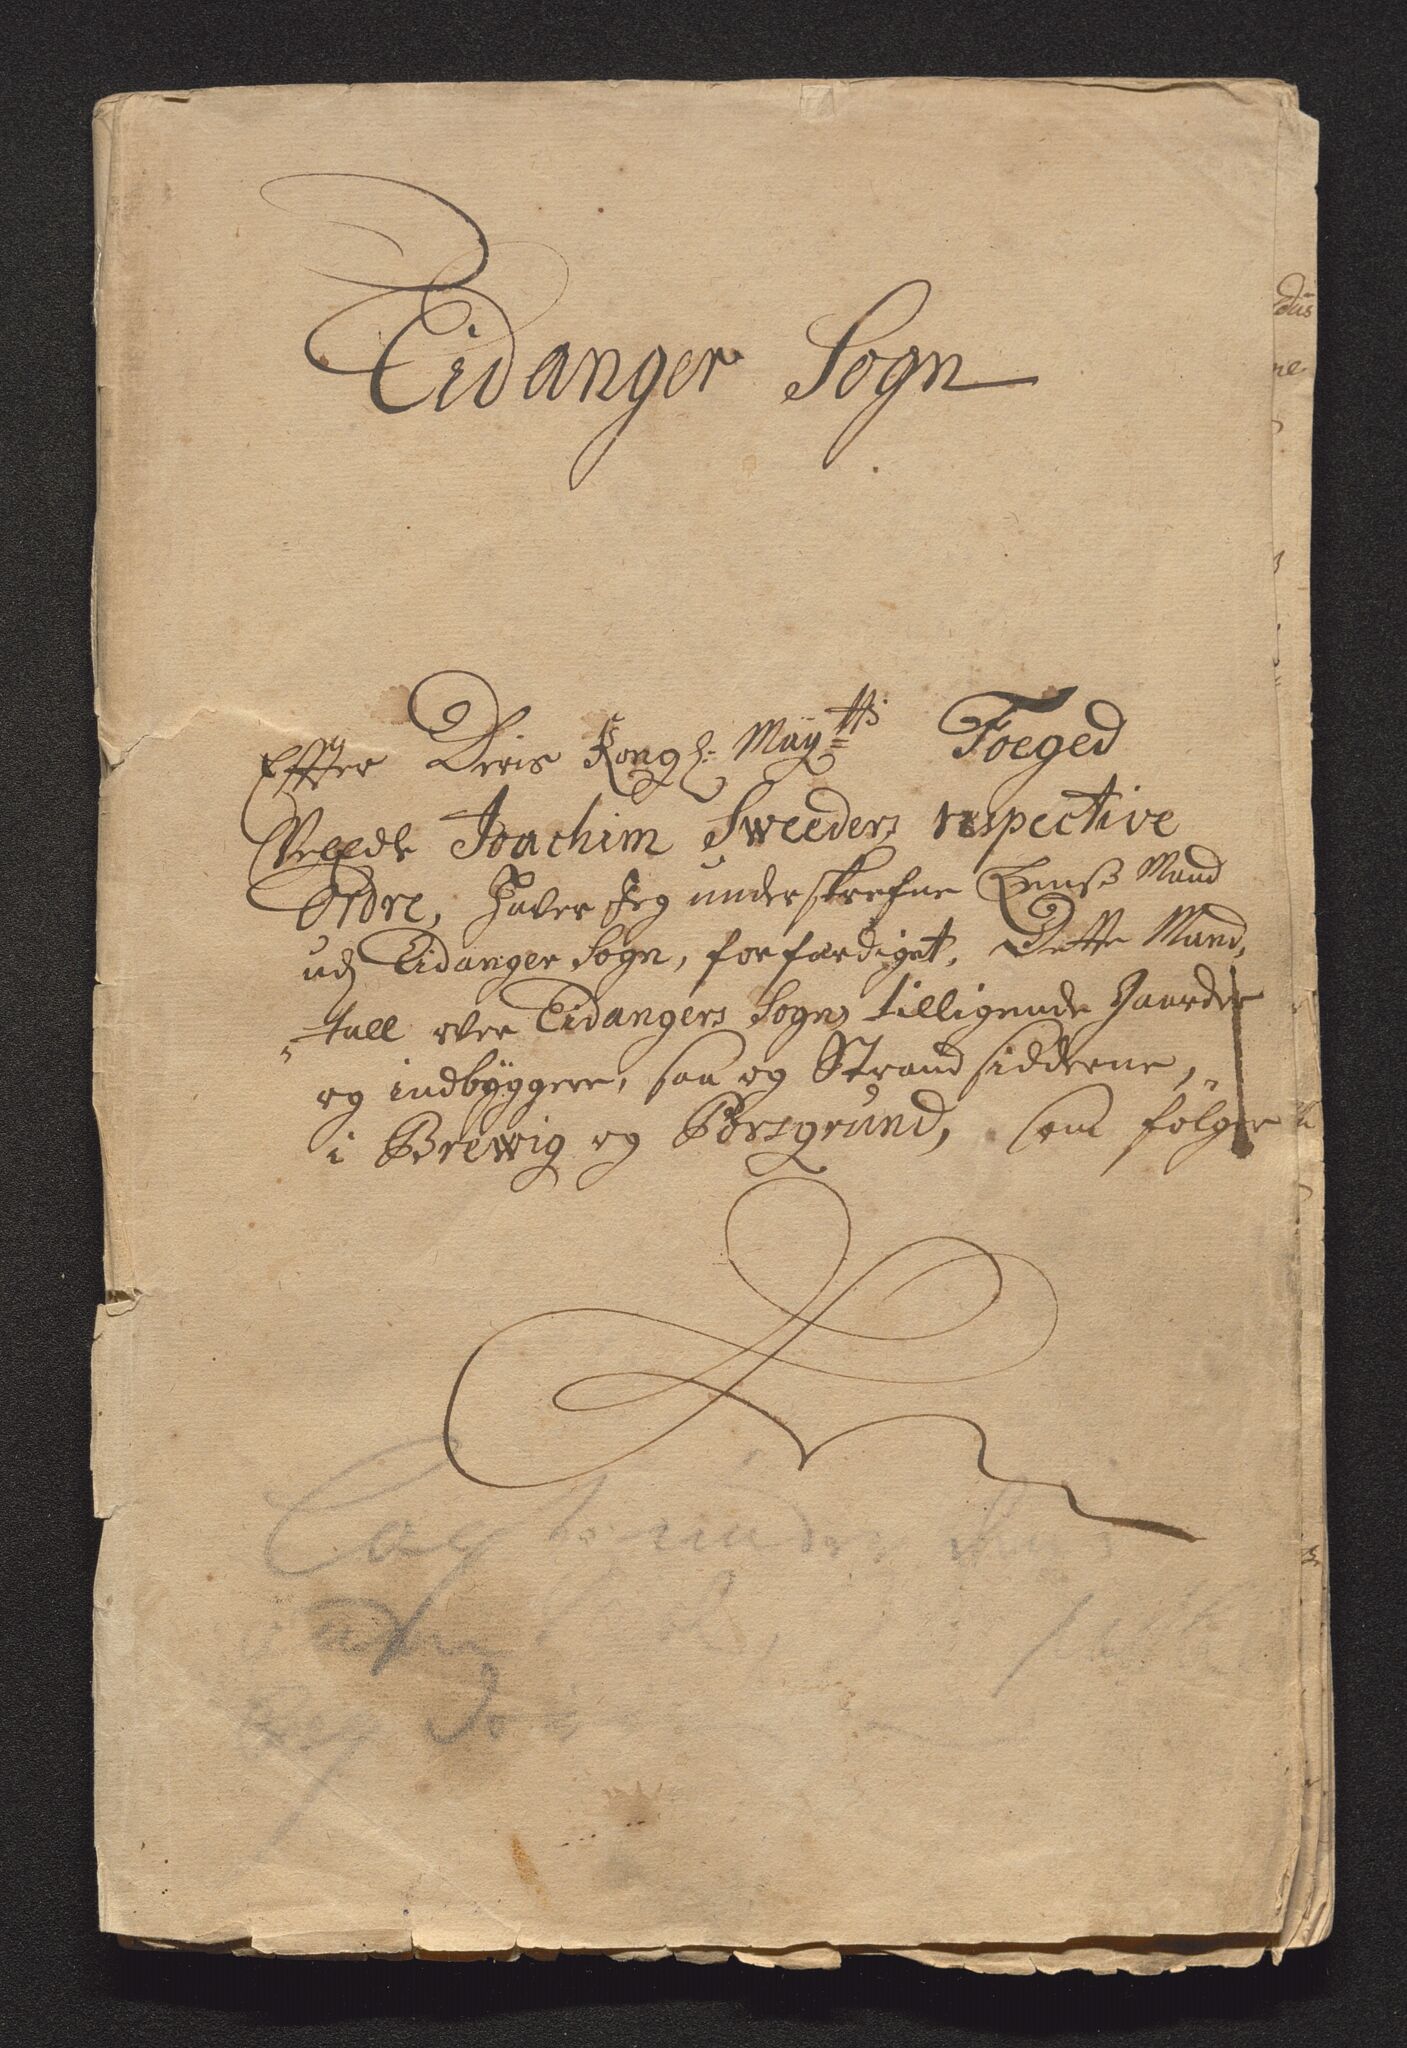 Eidanger Sogn
Effter Deris Kongl: Mayᵗᵗˢ Foeged
Welede Joachim Sweeders respective
Ordre, Haver Jeg underskrefne Lenß Mand
udj Eidanger Sogn, forfærdiget, Dette Mand,
„tall over Eidangers Sogns tilligende Gaarder
og indbÿggere, saa og Strandsidderne,
i Brewig og Porsgrund, som følger